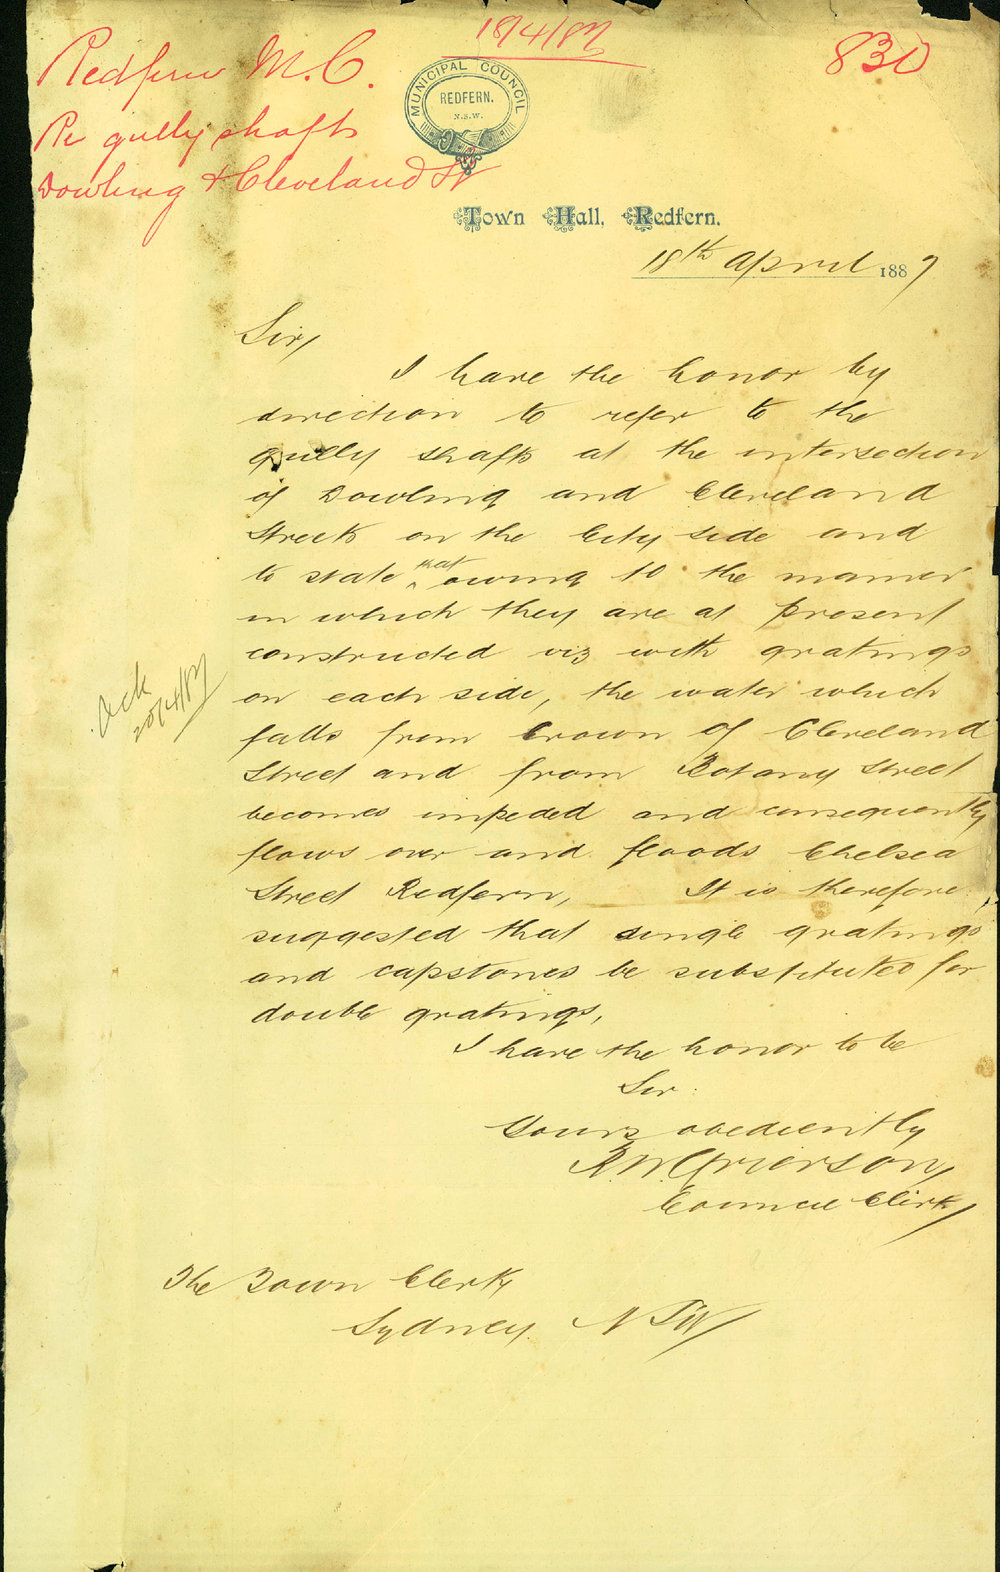 18/4/87
830
Redfern M.C.
Re gully shafts
Dowling & Cleveland St
MUNICIPAL COUNCIL
REDFERN.
N.S.W.
Town Hall, Redfern.
18th April 1887
Sir,
I have the honor by
direction to refer to the
gully shafts at the intersection
of Dowling and Cleveland
Streets on the City side and
to state that owing to the manner
in which they are at present
constructed viz with gratings
on each side, the water which
falls from crown of Cleveland
Street and from Botany Street
becomes impeded and consequently
flows over and floods Chelsea
Street Redfern, It is therefore
suggested that single gratings
and capstones be substituted for
double gratings,
I have the honor to be
Sir
Yours obediently
Grierson
Council Clerk
Ack
20/4/87
The Town Clerk
Sydney NSW